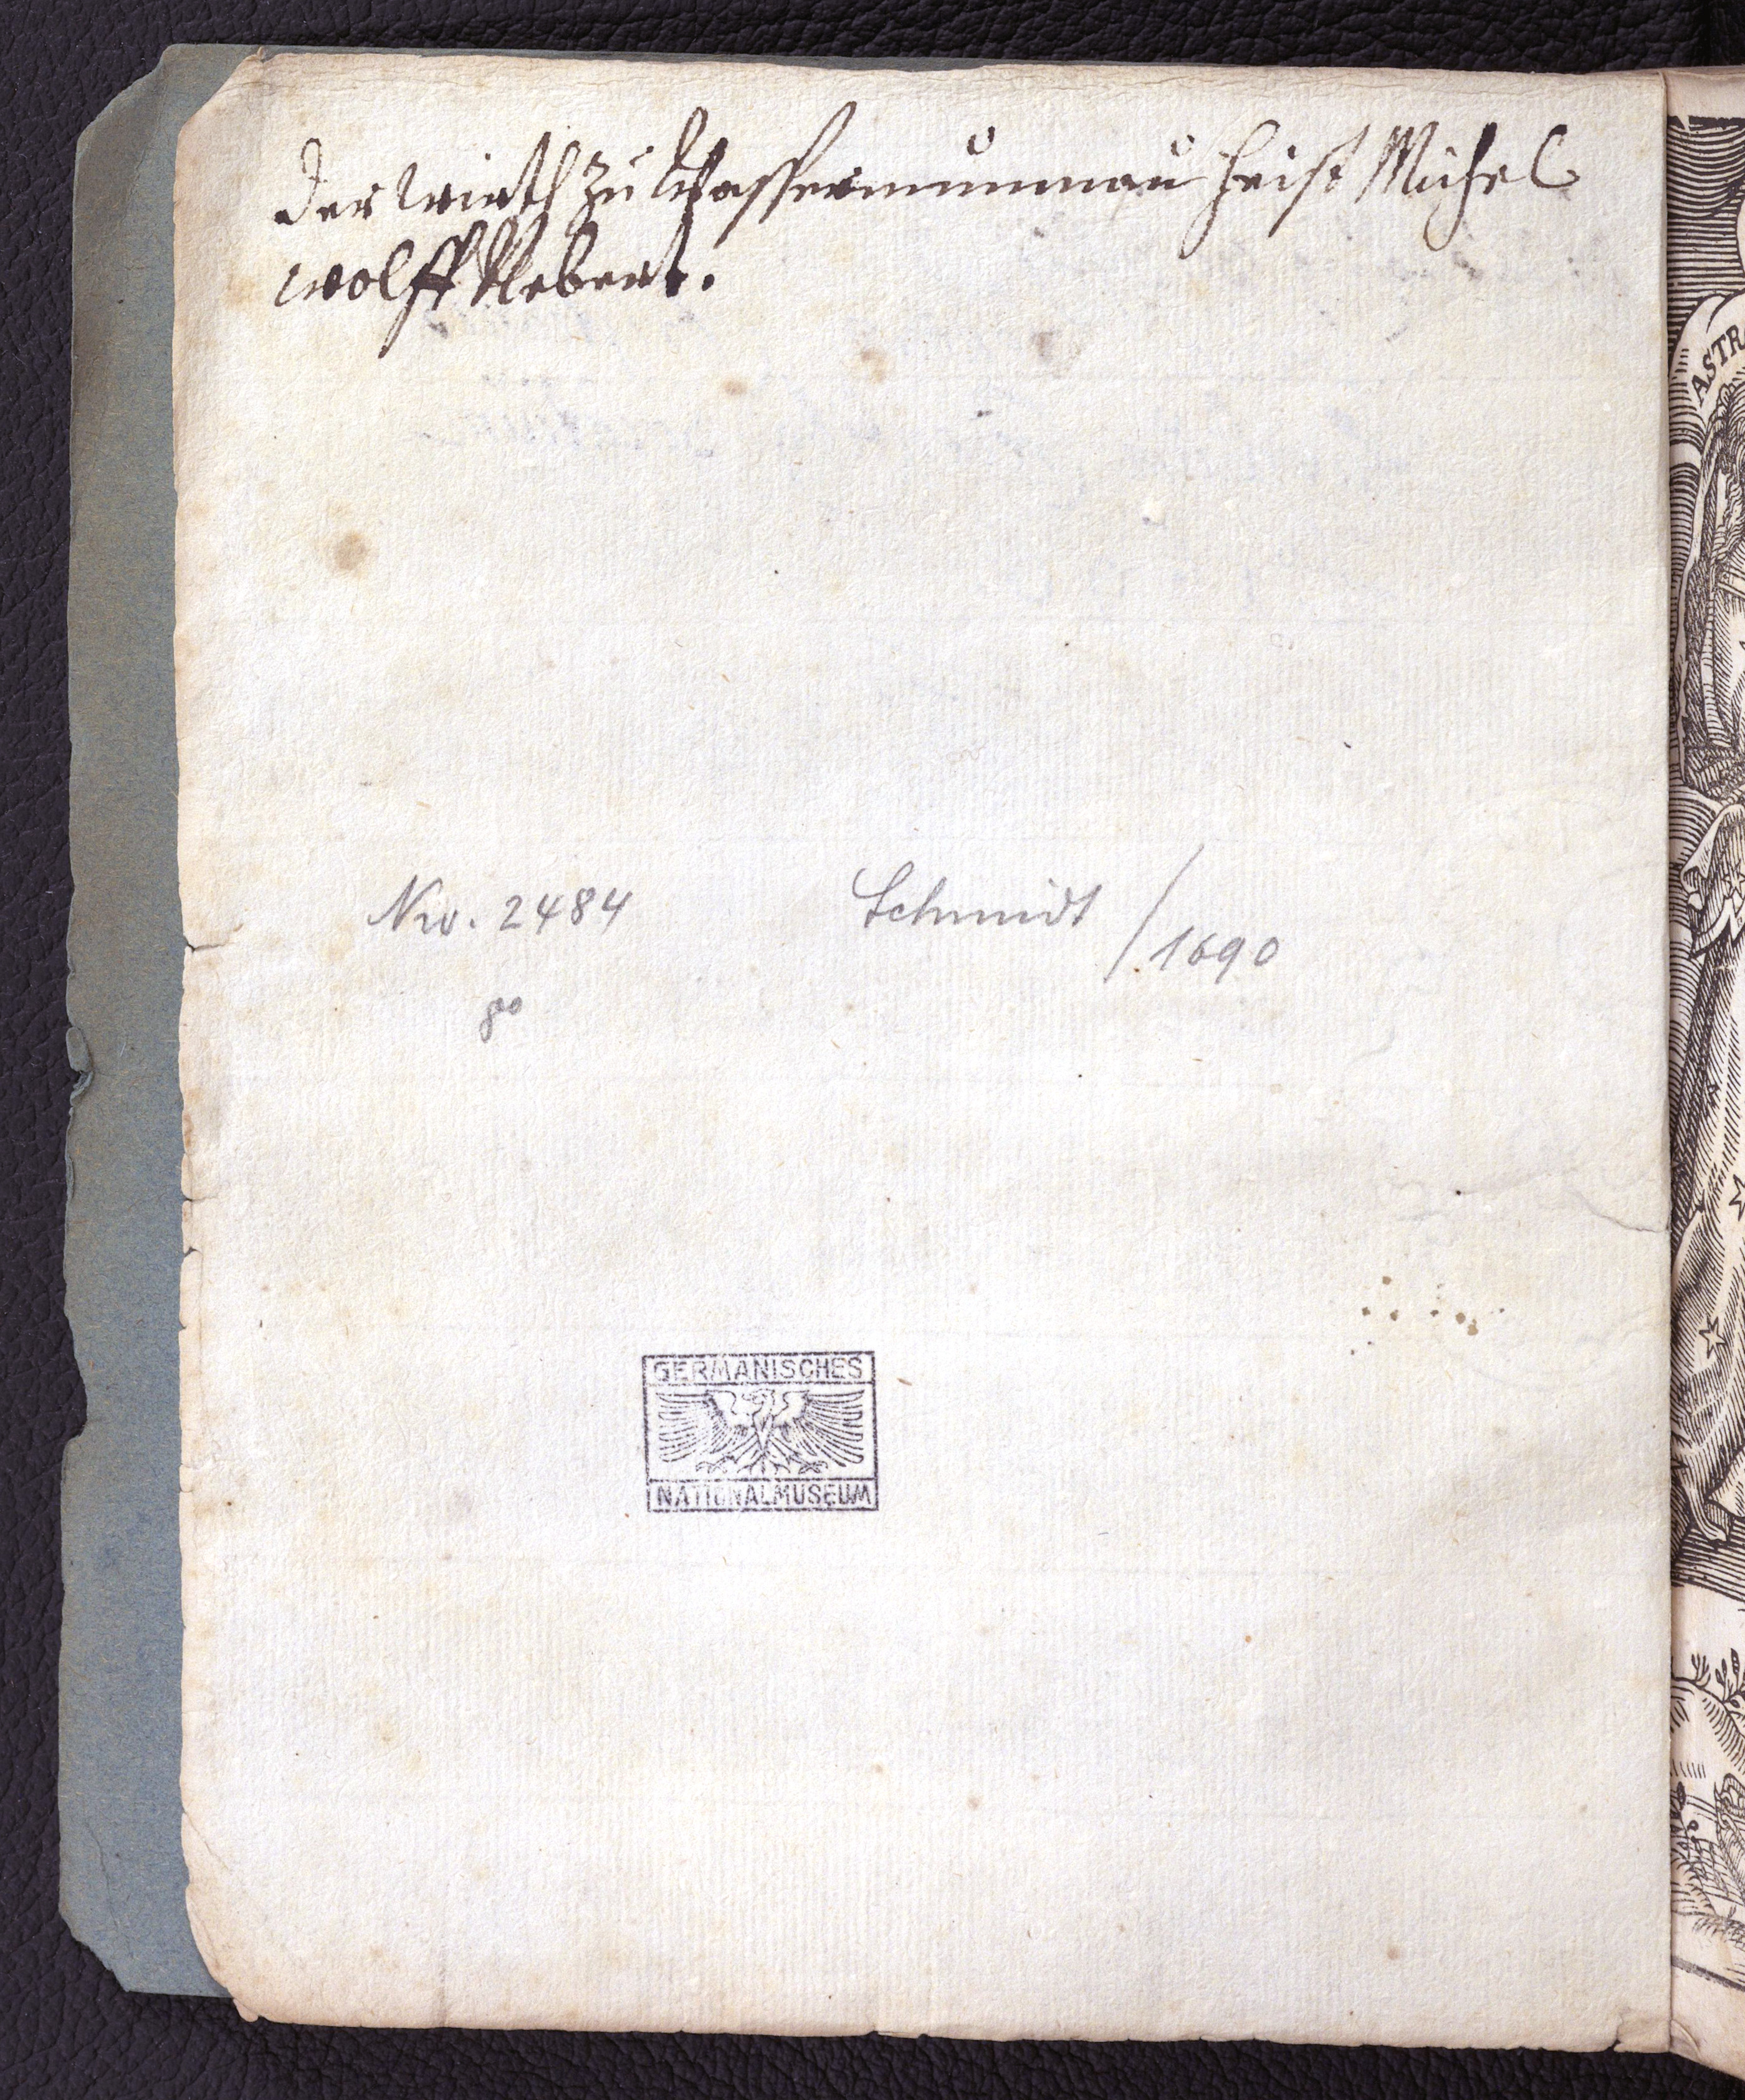 Der Wirth zu Wassermunnau heist Michel
Wolff Klebert.
Nro. 2484
Schmidt / 1690
8°
GERMANISCHES
NATIONALMUSEUM
ASTR